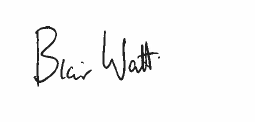 Blair Watt